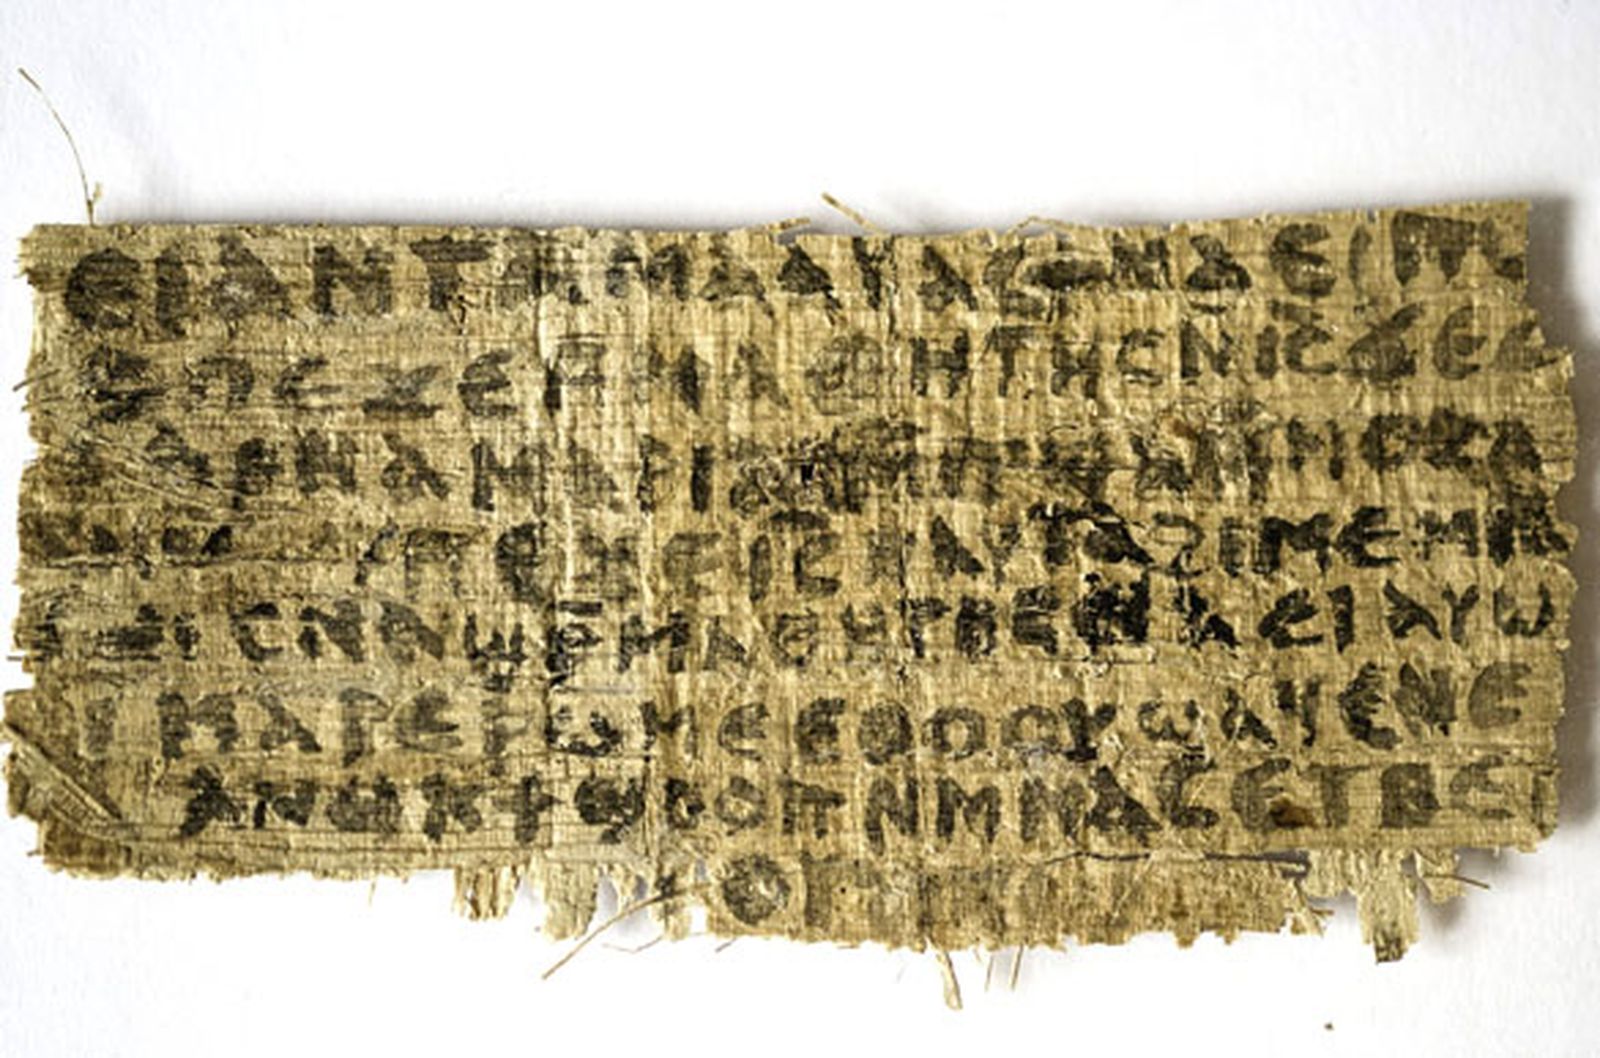 ⲉⲓ ⲁⲛ ⲧⲁⲙⲁⲁⲩ ⲁⲥϯ ⲛⲁⲉⲓ ⲡⲱ
ⲡⲉϫⲉ ⲙⲙⲁⲑⲏⲧⲏⲥ ⲛⲓ̅ⲥ̅ ϫⲉ ⲥ
ⲁⲣⲛⲁ ⲙⲁⲣⲓⲁⲙ ⲙⲡϣⲁ ⲙⲙⲟⲥ ⲁ
ⲡⲉϫⲉ ⲓ̅ⲥ̅ ⲛⲁⲩ ⲧⲁϩⲓⲙⲉ ⲙⲛ
ⲥⲛⲁϣⲣⲙⲁⲑⲏⲧⲏⲥ ⲛⲁⲉⲓ ⲁⲩⲱ
ⲓ ⲙⲁⲣⲉⲣⲱⲙⲉ ⲉⲑⲟⲟⲩ ϣⲁϥⲉ ⲛⲉ
ⲁⲛⲟⲕ ϯϣⲟⲟⲡ ⲛⲙⲙⲁⲥ ⲉⲧⲃⲉ ⲡ